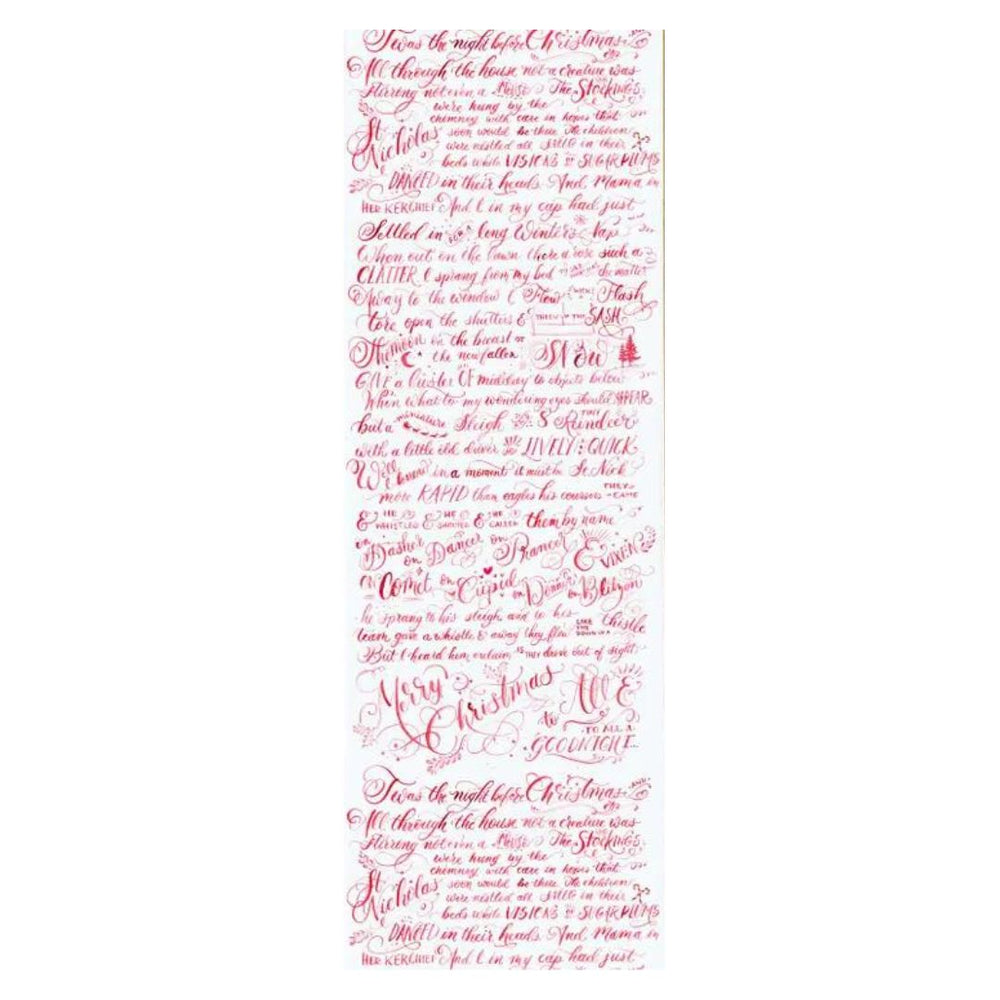 Twas the night before Christmas AND
All through the house not a creature was
stirring not even a Mouse The Stockings
were hung by the
chimney with care in hopes that
St Nicholas soon would be there The children
were nestled all still in their
beds while VISIONS OF SUGAR PLUMS
DANCED in their heads. And, Mama in
HER KERCHIEF And I in my cap had just
Settled in FOR A long Winters Nap
When out on the lawn there arose such a
CLATTER I sprang from my bed the matter
Away to the window I Flew LIKE A Flash
tore open the shutters & THREW UP THE SASH
The moon on the breast OF
the new fallen Snow
GIVE a luster Of midday to objects below
When what to my wondering eyes should APPEAR
but a miniature Sleigh & 8 TINY Reindeer
with a little old driver so LIVELY & QUICK
in a moment it must be St. Nick
more RAPID than eagles his coursers THEY CAME
& HE WHISTLED & HE SHOUTED & HE CALLED them by name
on Dasher on Dancer on Prancer & VIXEN
ON Comet on Cupid on Donner on Blitzen
he sprang to his sleigh and to his
team gave a whistle & away they flew LIKE THE DOWN OF A thistle
But I heard him exclaim AS THEY drove out of sight
Merry Christmas to All &
TO ALL A
GOODNIGHT...
Twas the night before Christmas AND
All through the house not a creature was
stirring not even a Mouse The Stockings
were hung by the
chimney with care in hopes that
St Nicholas soon would be there The children
were nestled all still in their
beds while VISIONS OF SUGAR PLUMS
DANCED in their heads. And, Mama in
HER KERCHIEF And I in my cap had just